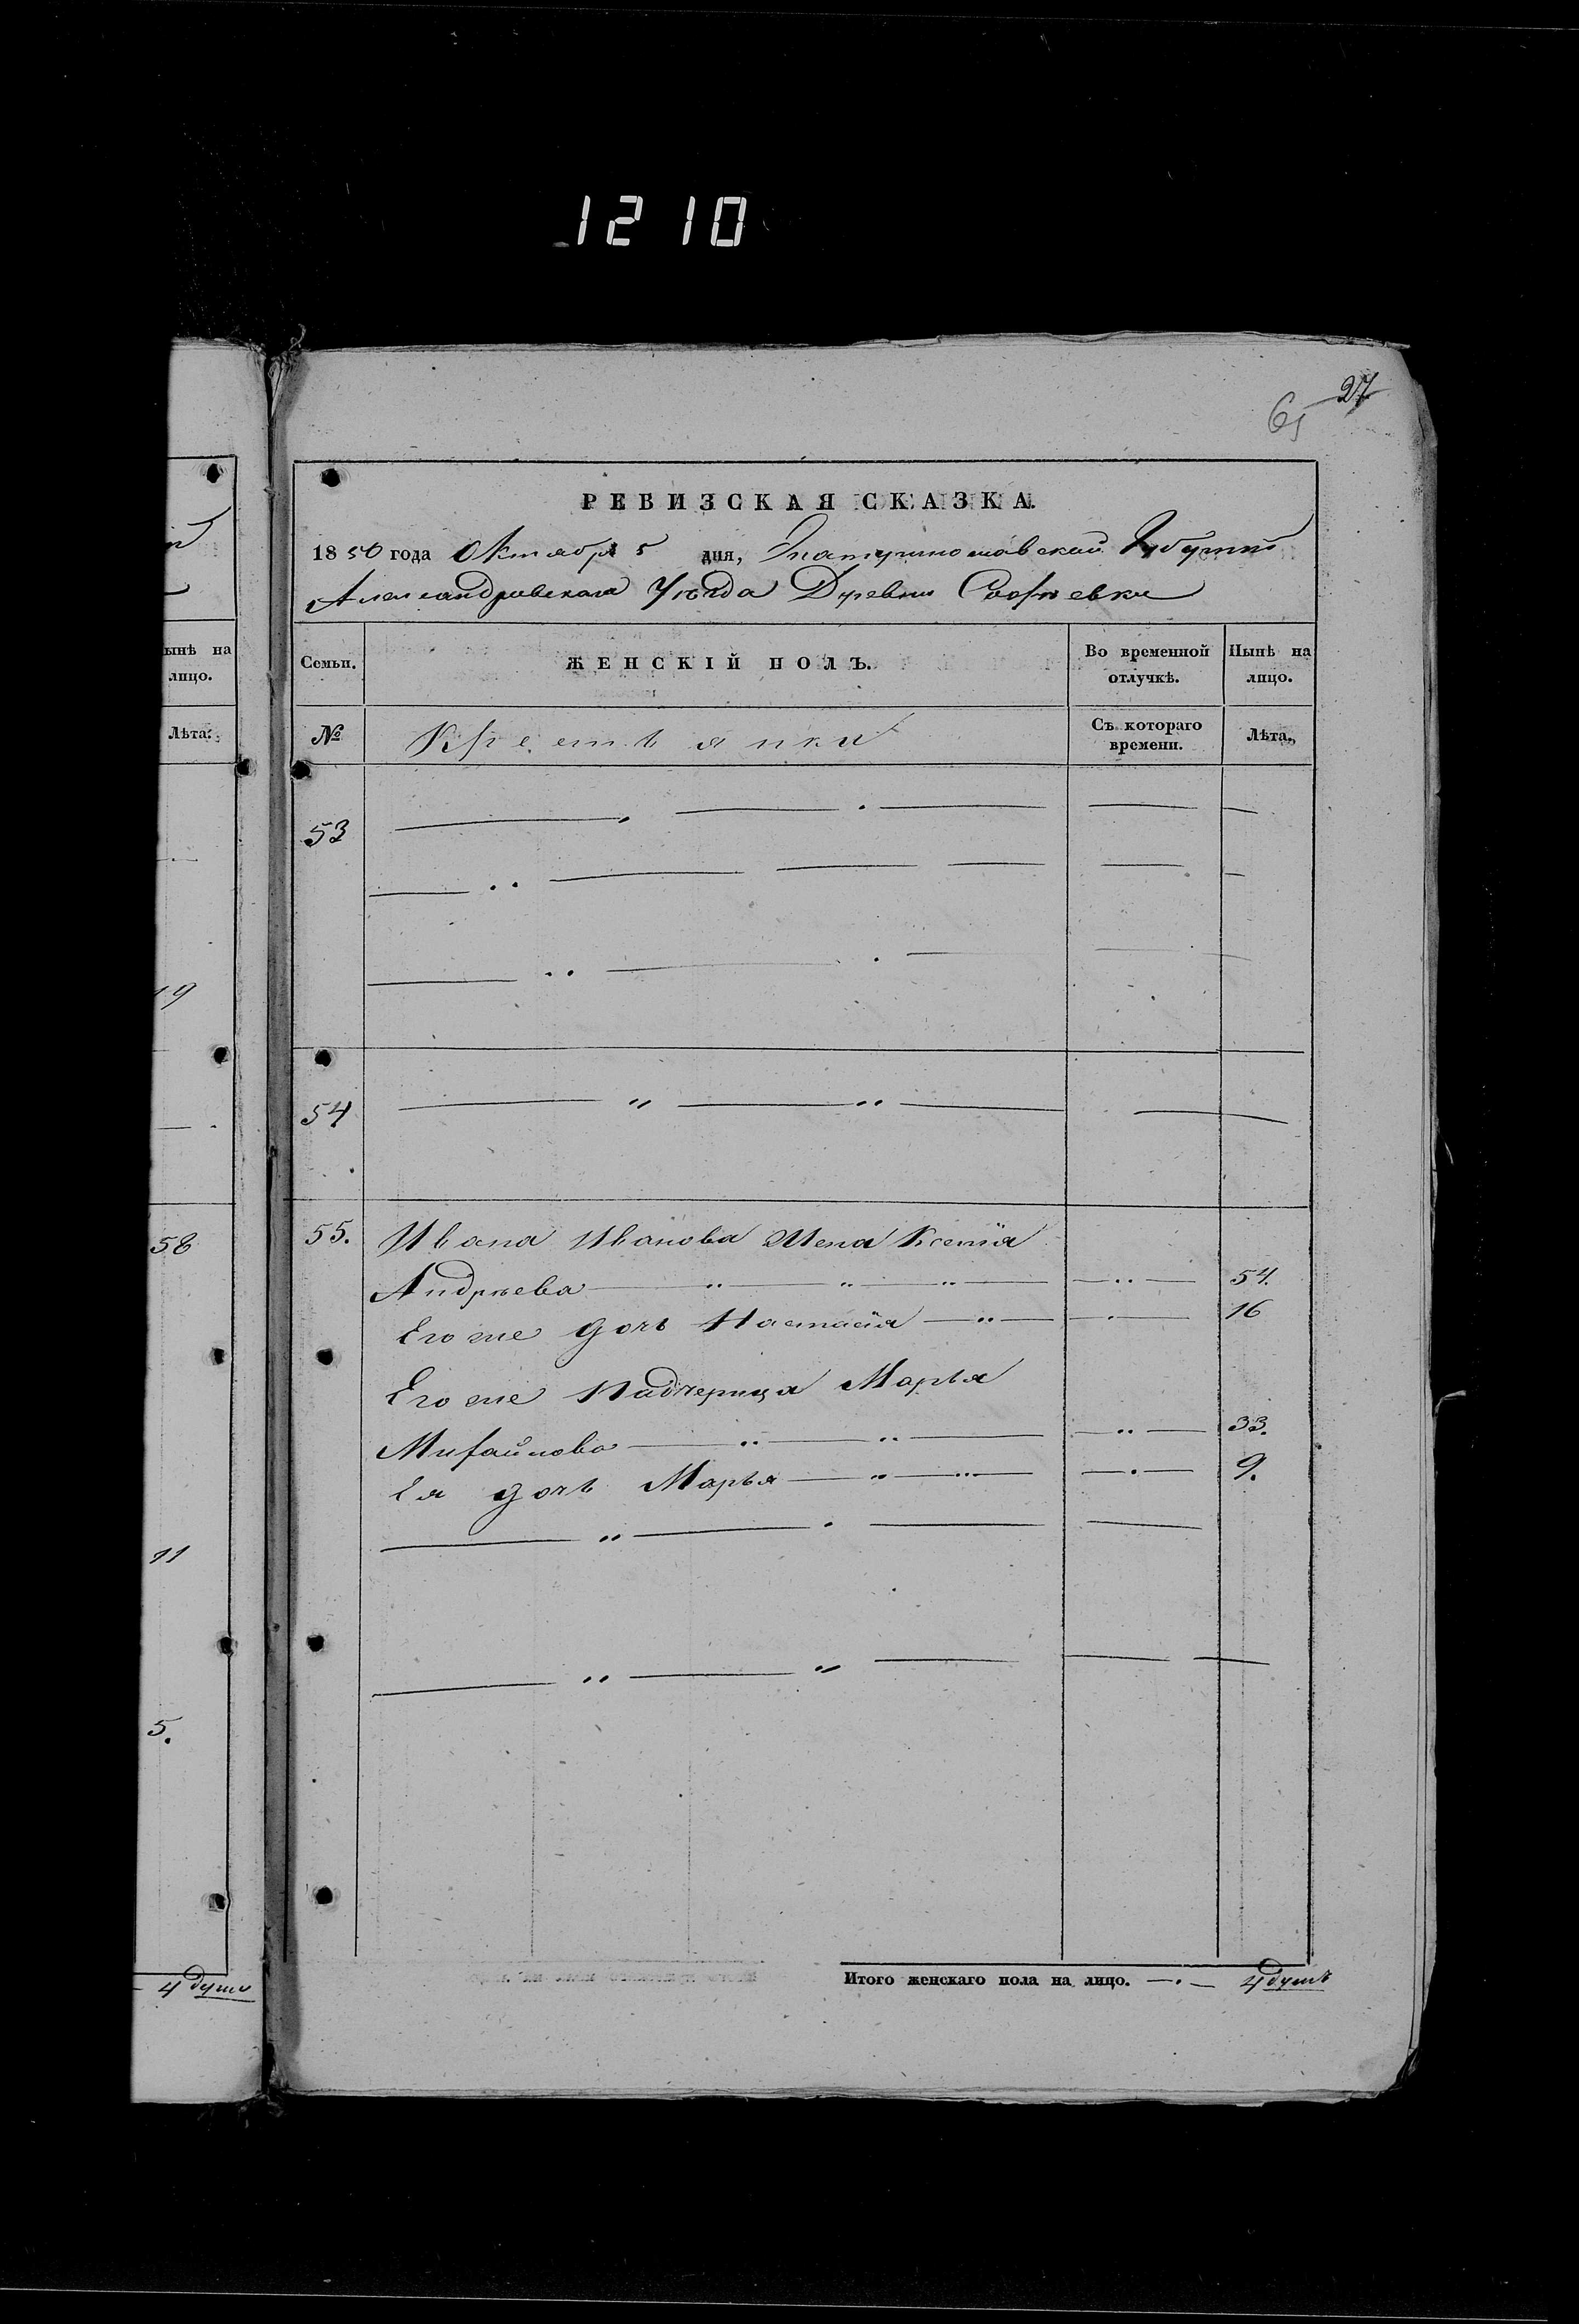 1210
27
65
РЕВИЗСКАЯ СКАЗКА.
1850 года Октября 5 дня, Екатеринославской Губерніи
Александровскаго Уѣзда Деревни Софіевки
ынѣ на лицо.
Семьи. ЖЕНСКІЙ ПОЛЪ. Во временной отлучкѣ. Нынѣ на лицо.
Лѣта.
№ Крестьянки Съ котораго времени. Лѣта.
53
19
54
58
55. Ивана Иванова Жена Ксенія
Андрѣева 54.
Его же дочь Настасія 16
Его же Падчерица Марья
Михайлова 33.
Ея дочь Марья 9.
11
5.
4 души
Итого женскаго пола на лицо. 4 душъ